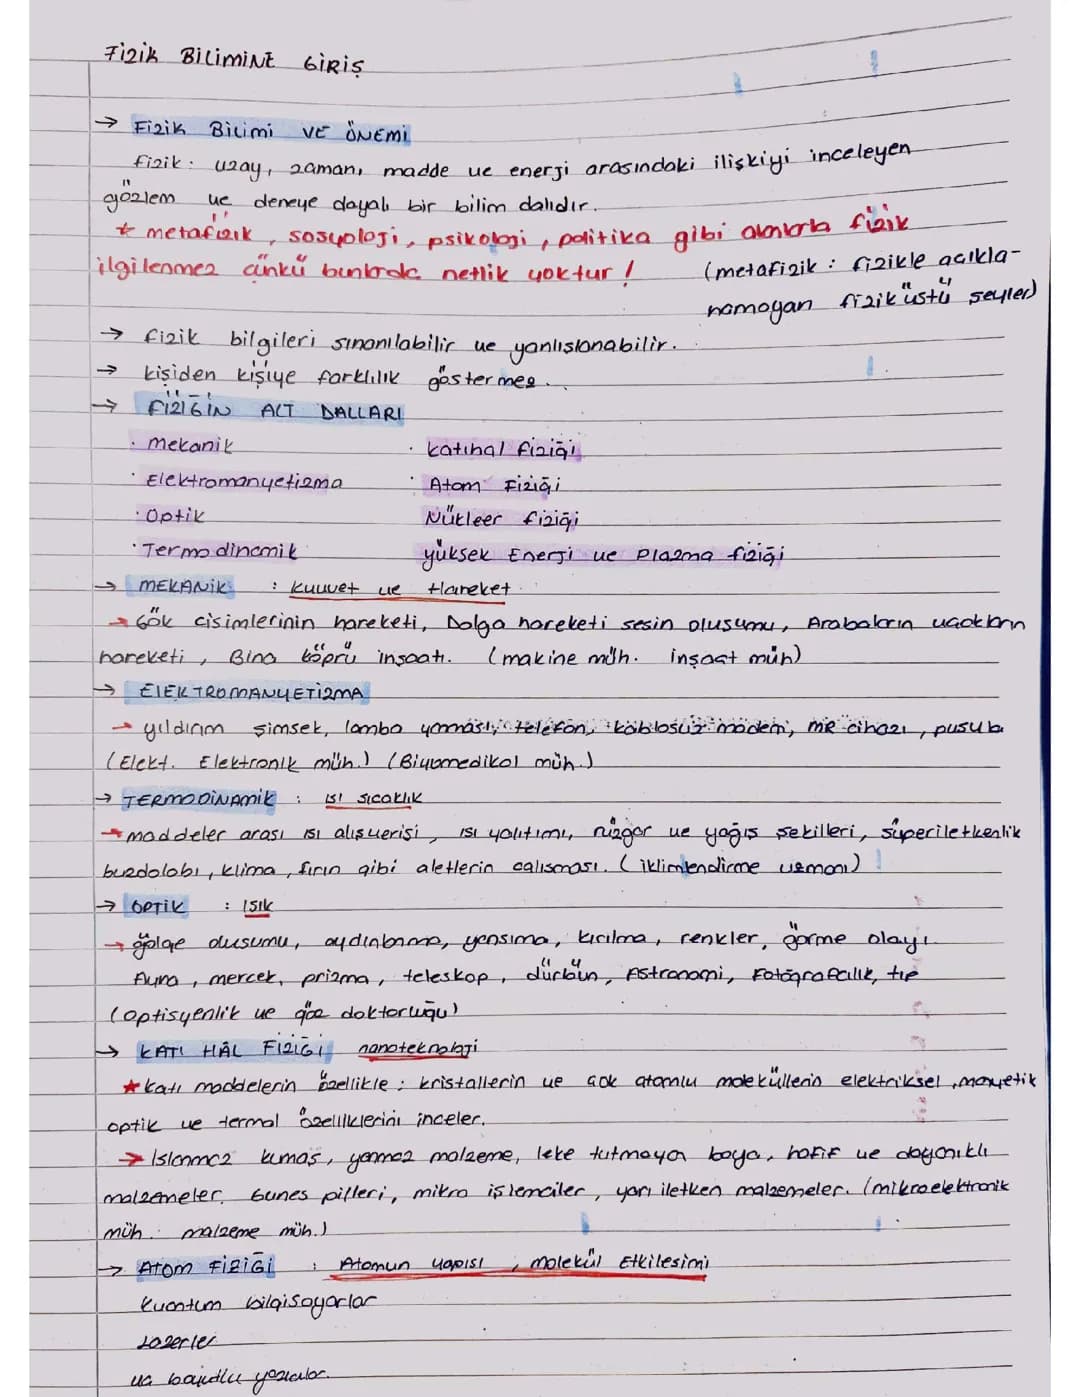 Fizik BiLimiNE GİRİŞ
→ Fizik Bilimi VE ÖNEMİ
fizik: uzay, zaman, madde ve enerji arasındaki ilişkiyi inceleyen
gözlem ve deneye dayalı bir bilim dalıdır.
* metafizik, sosyoloji, psikoloji, politika gibi alanlarla fizik
ilgilenmez çünkü bunlarda netlik yoktur!
(metafizik: fizikle açıkla-
namayan fizik üstü şeyler)
→ fizik bilgileri sınanılabilir ve yanlışlanabilir.
→ kişiden kişiye farklılık göstermez.
→ FİZİĞİN ALT DALLARI
· mekanik · katıhal fiziği
· Elektromanyetizma · Atom Fiziği
· Optik Nükleer fiziği
· Termodinamik yüksek Enerji ve Plazma fiziği
→ MEKANİK : kuvvet ve Hareket.
→ Gök cisimlerinin hareketi, Dalga hareketi sesin oluşumu, Arabaların uçakların
hareketi, Bina köprü inşaatı. (makine müh. inşaat müh)
→ ElEKTROMANYETİZMA
→ yıldırım şimşek, lamba yanması, telefon, kablosuz modem, MR cihazı, pusula
(Elekt. Elektronik müh.) (Biyomedikal müh.)
→ TERMODİNAMİK : ısı sıcaklık
→ maddeler arası ısı alışverişi, ısı yalıtımı, rüzgar ve yağış şekilleri, süperiletkenlik
buzdolabı, klima, fırın gibi aletlerin çalışması. (iklimlendirme uzmanı)
→ OPTİK : ışık
→ gölge oluşumu, aydınlanma, yansıma, kırılma, renkler, görme olayı
Ayna, mercek, prizma, teleskop, dürbün, Astronomi, Fotoğrafcılık, tıp
(optisyenlik ve göz doktorluğu)
→ KATI HÂL FİZİĞİ nanoteknoloji
★ katı maddelerin özellikle: kristallerin ve çok atomlu moleküllerin elektriksel, manyetik
optik ve termal özelliklerini inceler.
→ Islanmaz kumaş, yanmaz malzeme, leke tutmayan boya, hafif ve dayanıklı
malzemeler. Güneş pilleri, mikro işlemciler, yarı iletken malzemeler. (mikroelektronik
müh. malzeme müh.)
→ ATOM FİZİĞİ : Atomun yapısı, molekül Etkileşimi
kuantum bilgisayarlar
Lazerler
üç boyutlu yazıcılar.